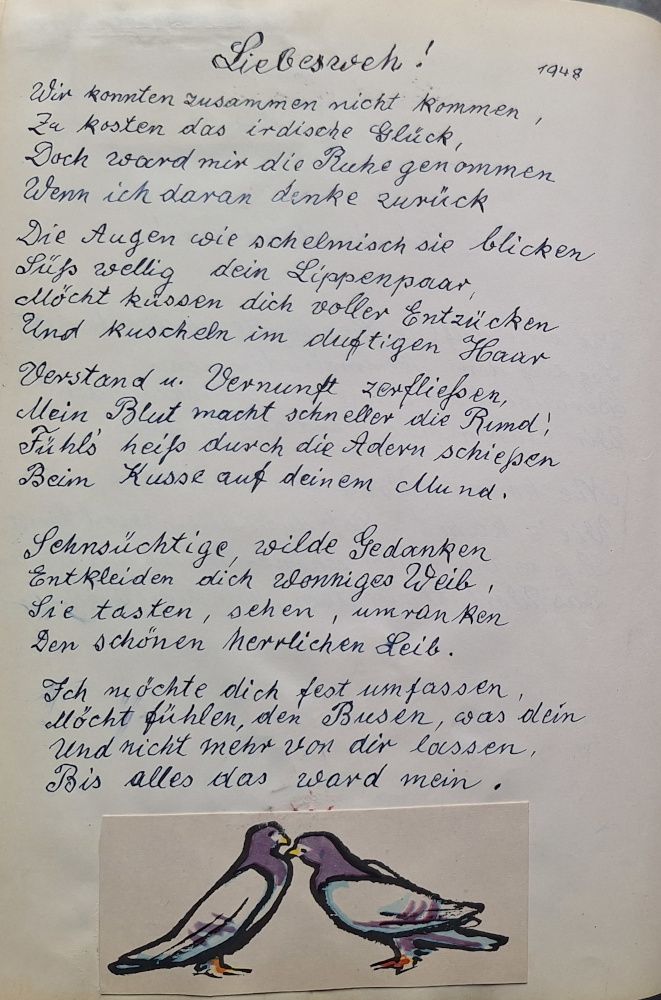 Liebesweh!
1948
Wir konnten zusammen nicht kommen,
Zu kosten das irdische Glück,
Doch ward mir die Ruhe genommen
Wenn ich daran denke zurück
Die Augen wie schelmisch sie blicken
Süß wellig dein Lippenpaar,
Möcht küssen dich voller Entzücken
Und kuscheln im duftigen Haar
Verstand u. Vernunft zerfließen,
Mein Blut macht schneller die Rund',
Fühl's heiß durch die Adern schießen
Beim Kusse auf deinem Mund.
Sehnsüchtige, wilde Gedanken
Entkleiden dich wonniges Weib,
Sie tasten, sehen, umranken
Den schönen herrlichen Leib.
Ich möchte dich fest umfassen,
Möcht fühlen, den Busen, was dein
Und nicht mehr von dir lassen,
Bis alles das ward mein.